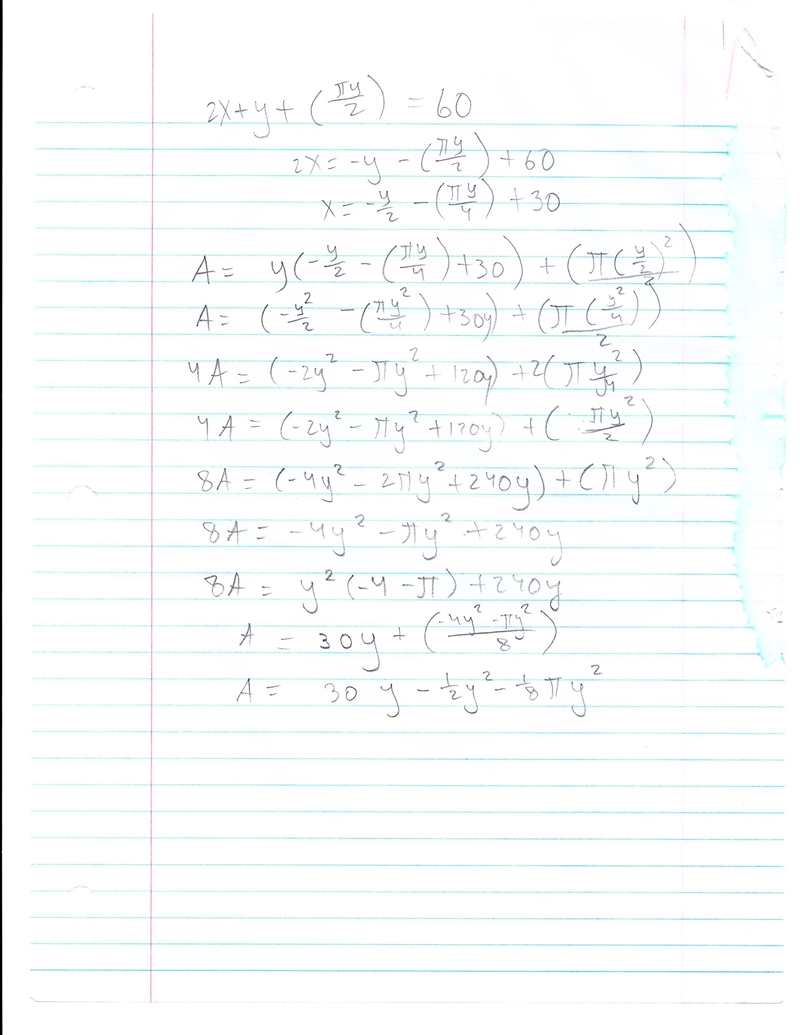 2x+y+(πy/2) = 60
2x = -y - (πy/2) + 60
x = -y/2 - (πy/4) + 30
A = y(-y/2 - (πy/4) + 30) + (π(y/2)²/2)
A = (-y²/2 - (πy²/4) + 30y) + (π(y²/4)/2)
4A = (-2y² - πy² + 120y) + 2(πy²/4)
4A = (-2y² - πy² + 120y) + (πy²/2)
8A = (-4y² - 2πy² + 240y) + (πy²)
8A = -4y² - πy² + 240y
8A = y²(-4 - π) + 240y
A = 30y + (-4y² - πy²/8)
A = 30 y - 1/2y² - 1/8πy²